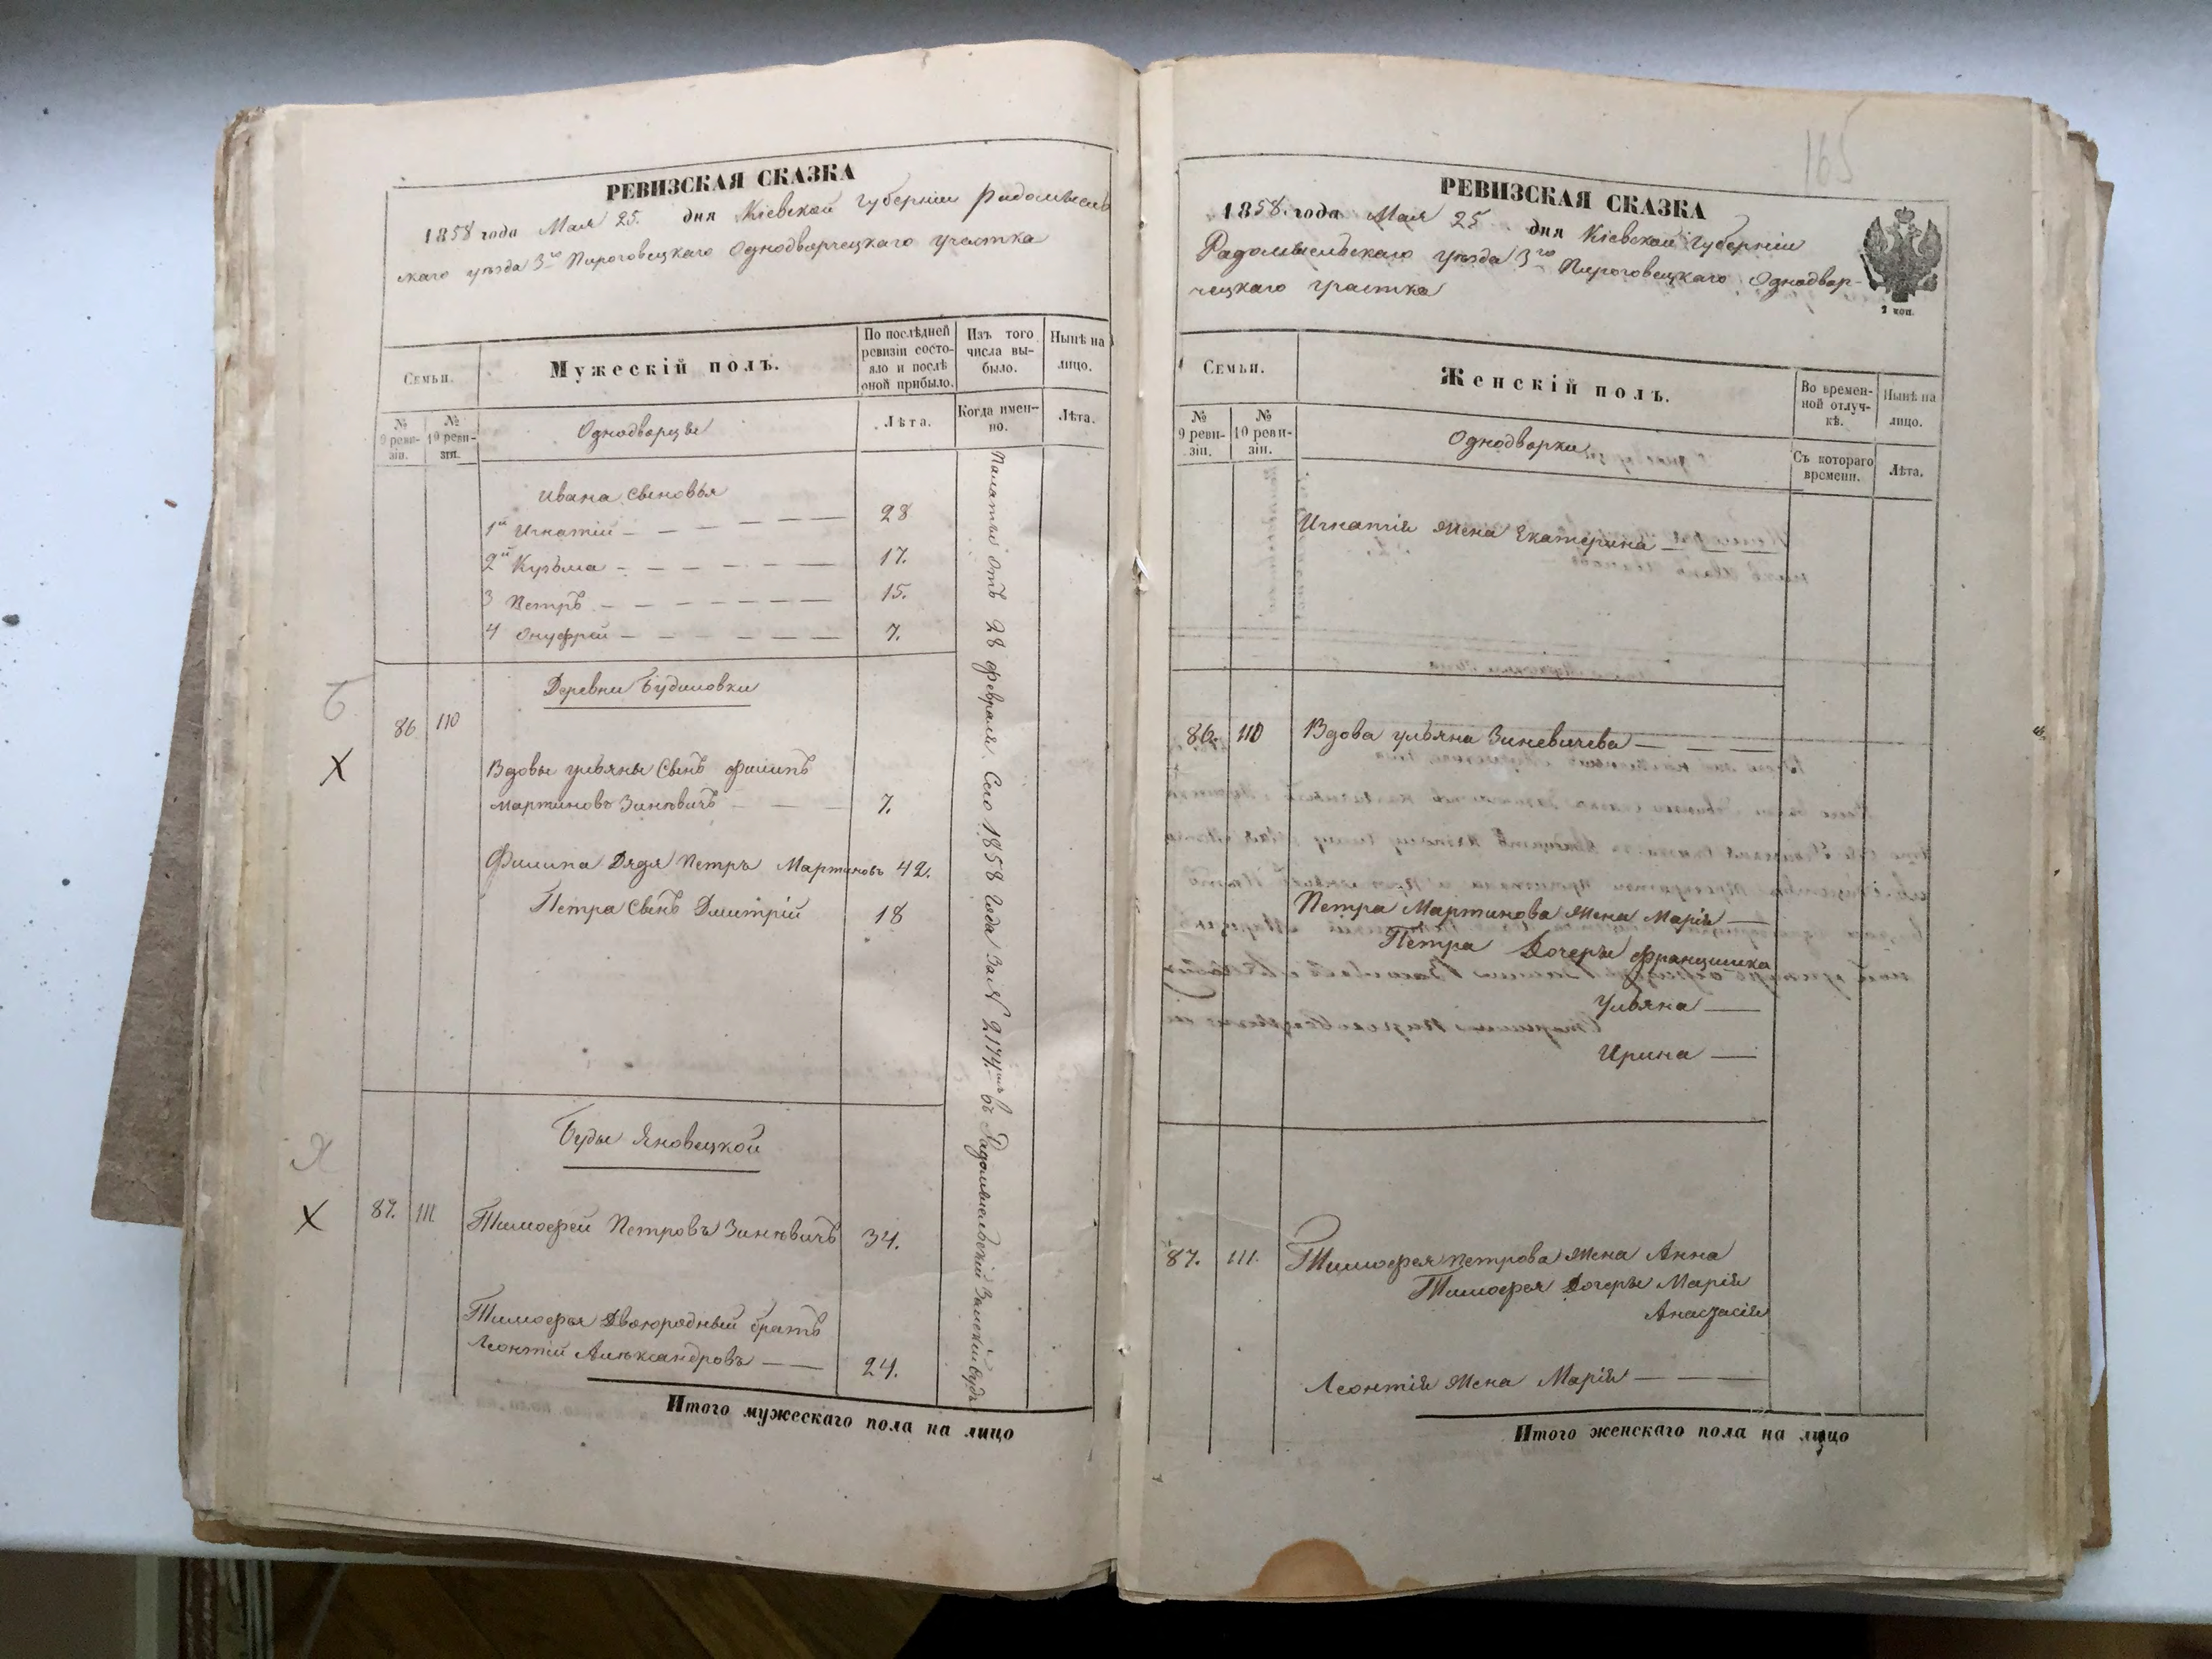 РЕВИЗСКАЯ СКАЗКА
1858 года Мая 25. дня Кіевской Губерніи Радомысль
скаго уѣзда 3го Пироговецкаго Однодворческаго участка
Семьи.
Мужескій полъ.
По послѣдней ревизіи состояло и послѣ оной прибыло.
Изъ того числа выбыло.
Нынѣ на лицо.
№ 9 реви-зіи.
№ 10 реви-зіи.
Однодворцы
Лѣта.
Когда имен-но.
Лѣта.
Ивана сыновья
1й Игнатій — — — — 28
2й Кузьма — — — — — — 17.
3 Петръ — — — — — — 15.
4 Онуфрей — — — — — — 7.
Деревни Будиловки
Б
86 110
X
Вдовы Ульяны сынъ Филипъ
Мартиновъ Зинѣвичъ — — — 7.
Филипа Дядя Петръ Мартиновъ 42.
Петра сынъ Дмитрій 18
Буды Яновецкой
Я
X 87. 111. Тимофей Петровъ Зинѣвичъ 34.
Тимофея Двоюродный братъ
Леонтій Алѣксандровъ — — 24.
Палаты отъ 28 февраля Сего 1858 года за № 2174 въ Радомысльскій Земскій Судъ
Итого мужескаго пола на лицо
165
РЕВИЗСКАЯ СКАЗКА
1858 года Мая 25 дня Кіевской Губерніи
Радомысльскаго уѣзда 3го Пироговецкаго Однодвор-
ческаго участка
2 коп.
Семьи.
Женскій полъ.
Во времен-ной отлуч-кѣ.
Нынѣ на лицо.
№ 9 реви-зіи.
№ 10 реви-зіи.
Однодворки
Съ котораго времени.
Лѣта.
Игнатія жена Екатерина — — —
86. 110 Вдова Ульяна Зиневичева — — —
Петра Мартинова жена Марія —
Петра Дочери Францишка
Ульяна —
Ирина —
87. 111. Тимофея Петрова жена Анна
Тимофея Дочери Марія
Анастасія
Леонтія жена Марія — — —
Итого женскаго пола на лицо